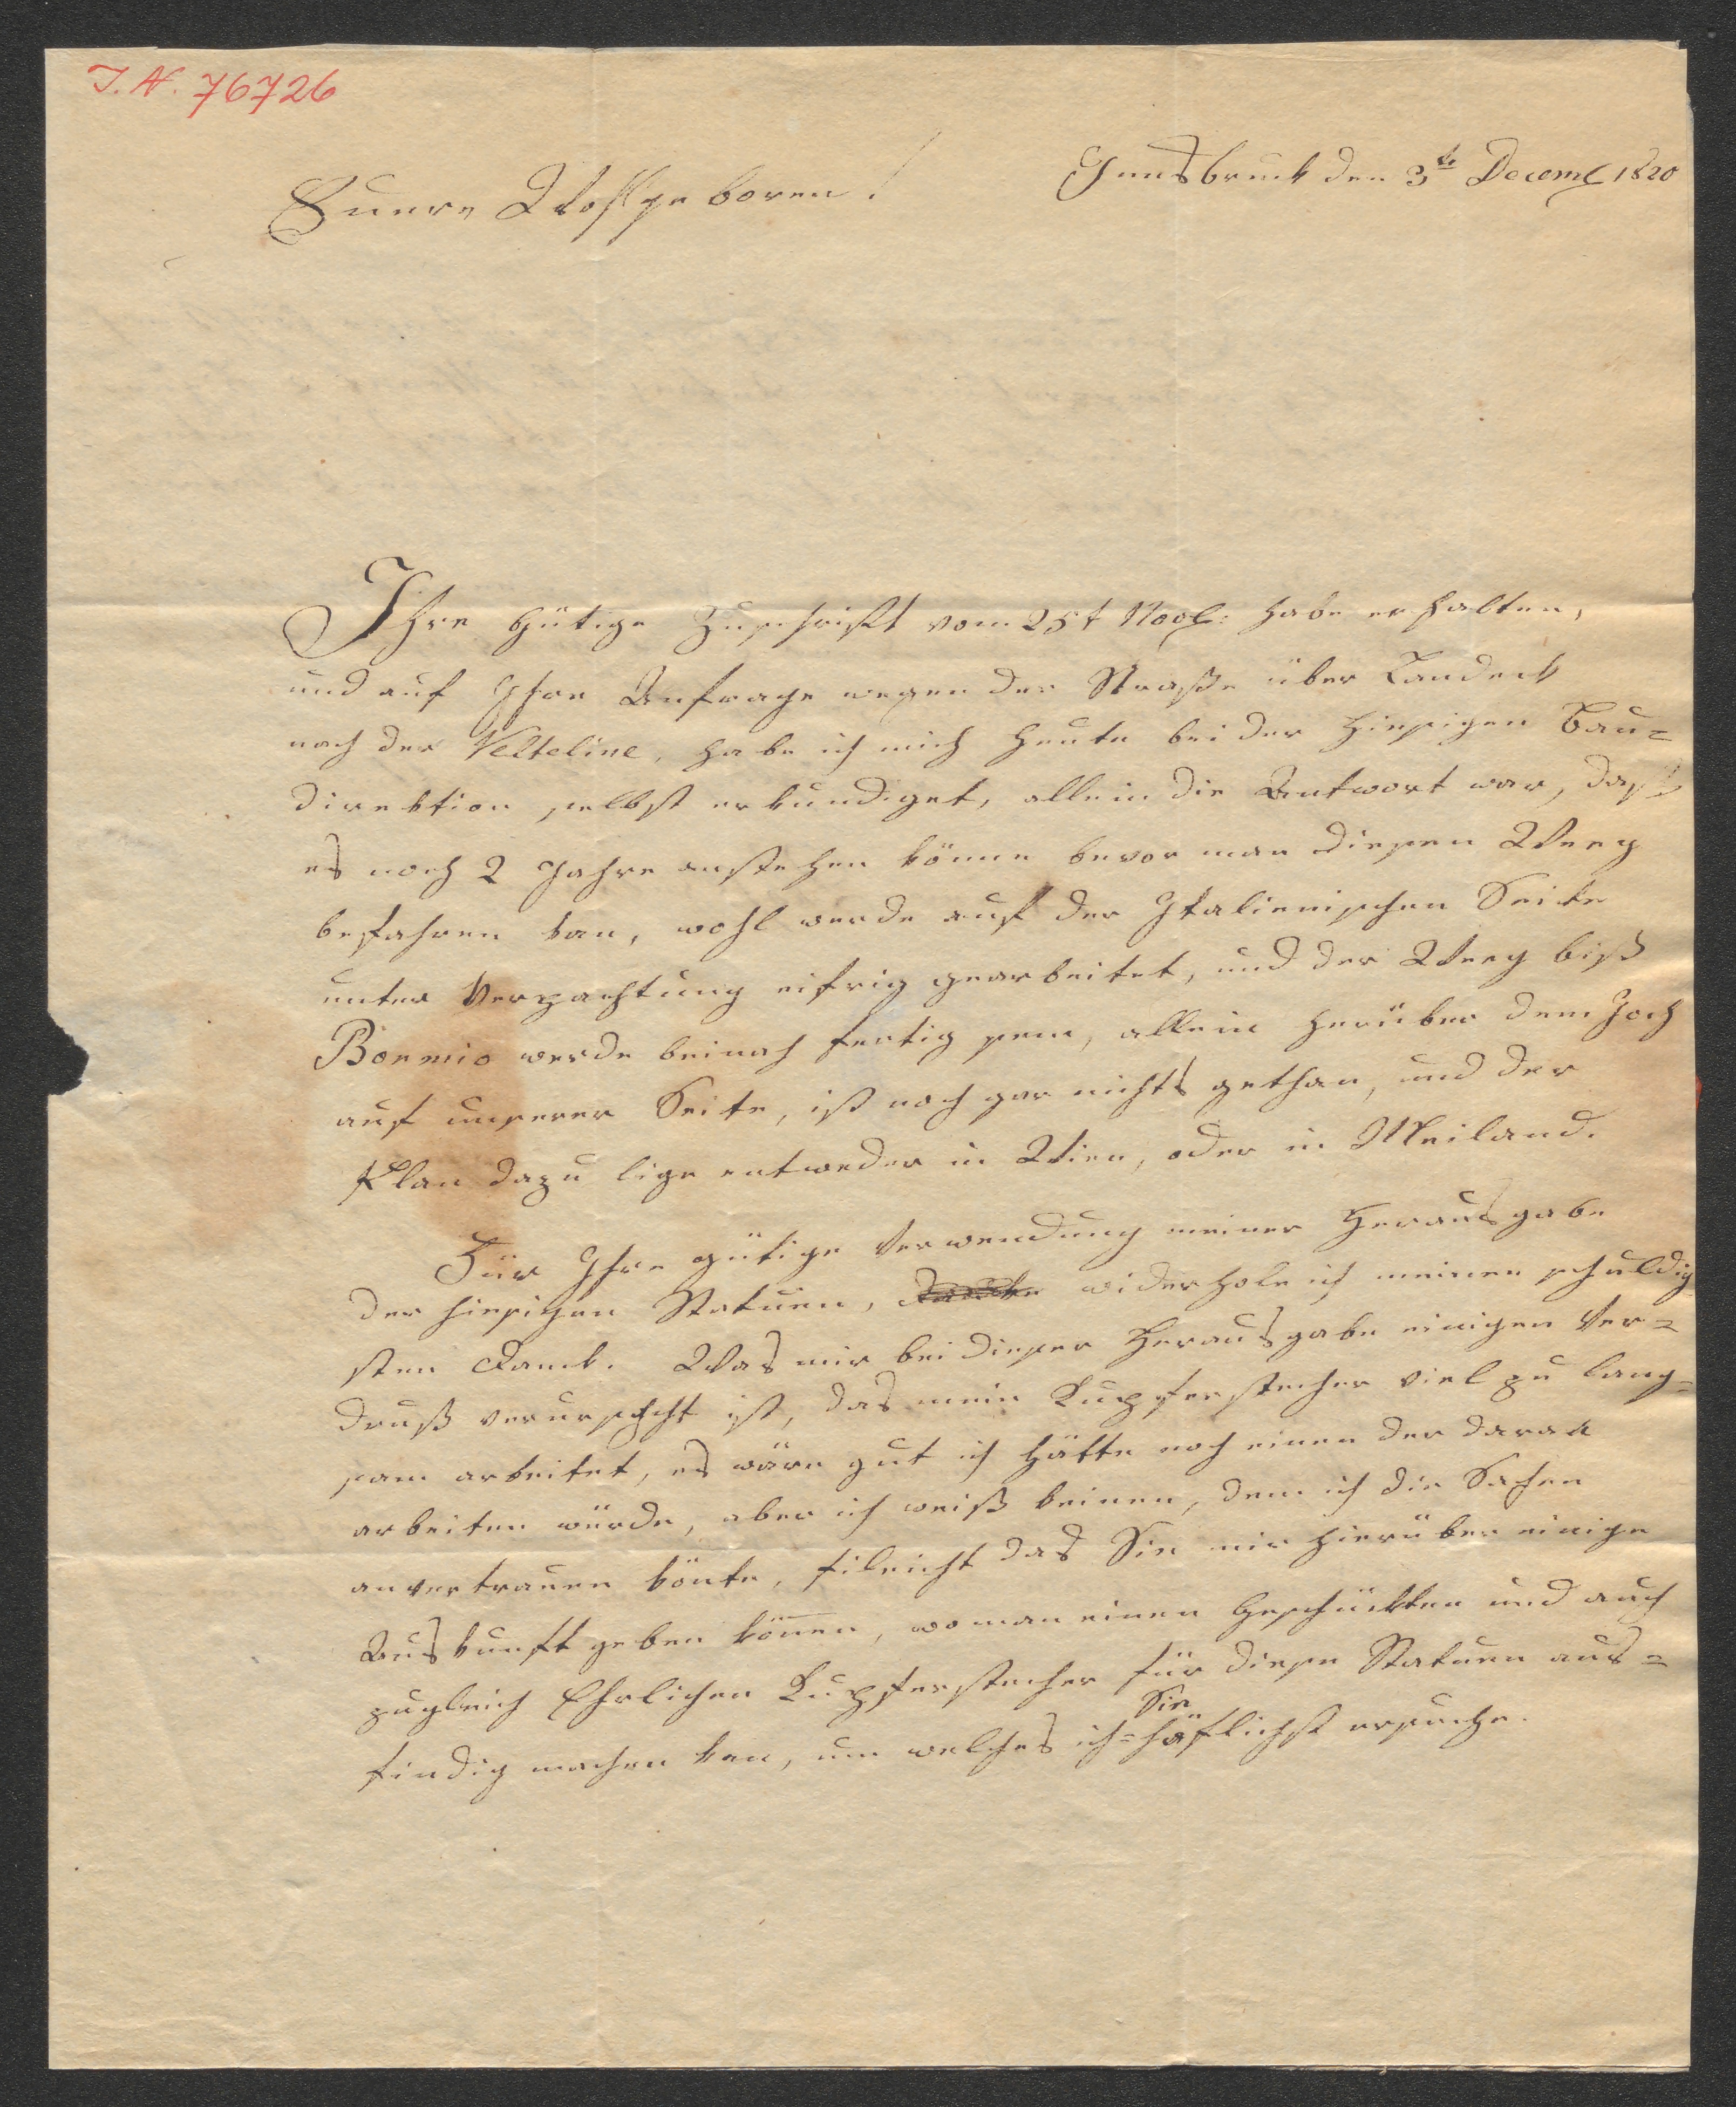 I. N. 76726
Innsbruck den 3te Decemb 1820
Euere Wohlgeboren!
Ihre gütige Zuschrift vom 25t Novb: habe erhalten,
und auf Ihre Anfrage wegen der Straße über Landeck
nach der Velteline, habe ich mich heute bei der hiesigen Bau=
direktion selbst erkundiget, allein die Antwort war, daß
es noch 2 Jahre anstehen könne bevor man diesen Weeg
befahren kan, wohl werde auf der Italienischen Seite
unter Verpachtung eifrig gearbeitet, und der Weeg biß
Bormio werde beinah fertig sein, allein herüber dem Joch
auf unserer Seite, ist noch gar nichts gethan, und der
Plan dazu lige entweder in Wien, oder in Meiland.
Für Ihre gütige Verwendung meiner Herausgabe
der hiesigen Statuen, widerhole ich meinen schuldig
sten Dank. Was mir bei dieser Herausgabe einigen Ver=
druß verursacht ist, das mein Kupferstecher viel zu lang=
sam arbeitet, es wäre gut ich hätte noch einen der daran
arbeiten würde, aber ich weiß keinen, dem ich die Sachen
anvertrauen könte, fileicht das Sie mir hierüber einige
Auskunft geben können, wo man einen Geschickten und auch
zugleich Ehrlichen Kupferstecher für diese Statuen aus=
Sie
findig machen kan, um welches ich = höflichst ersuche.